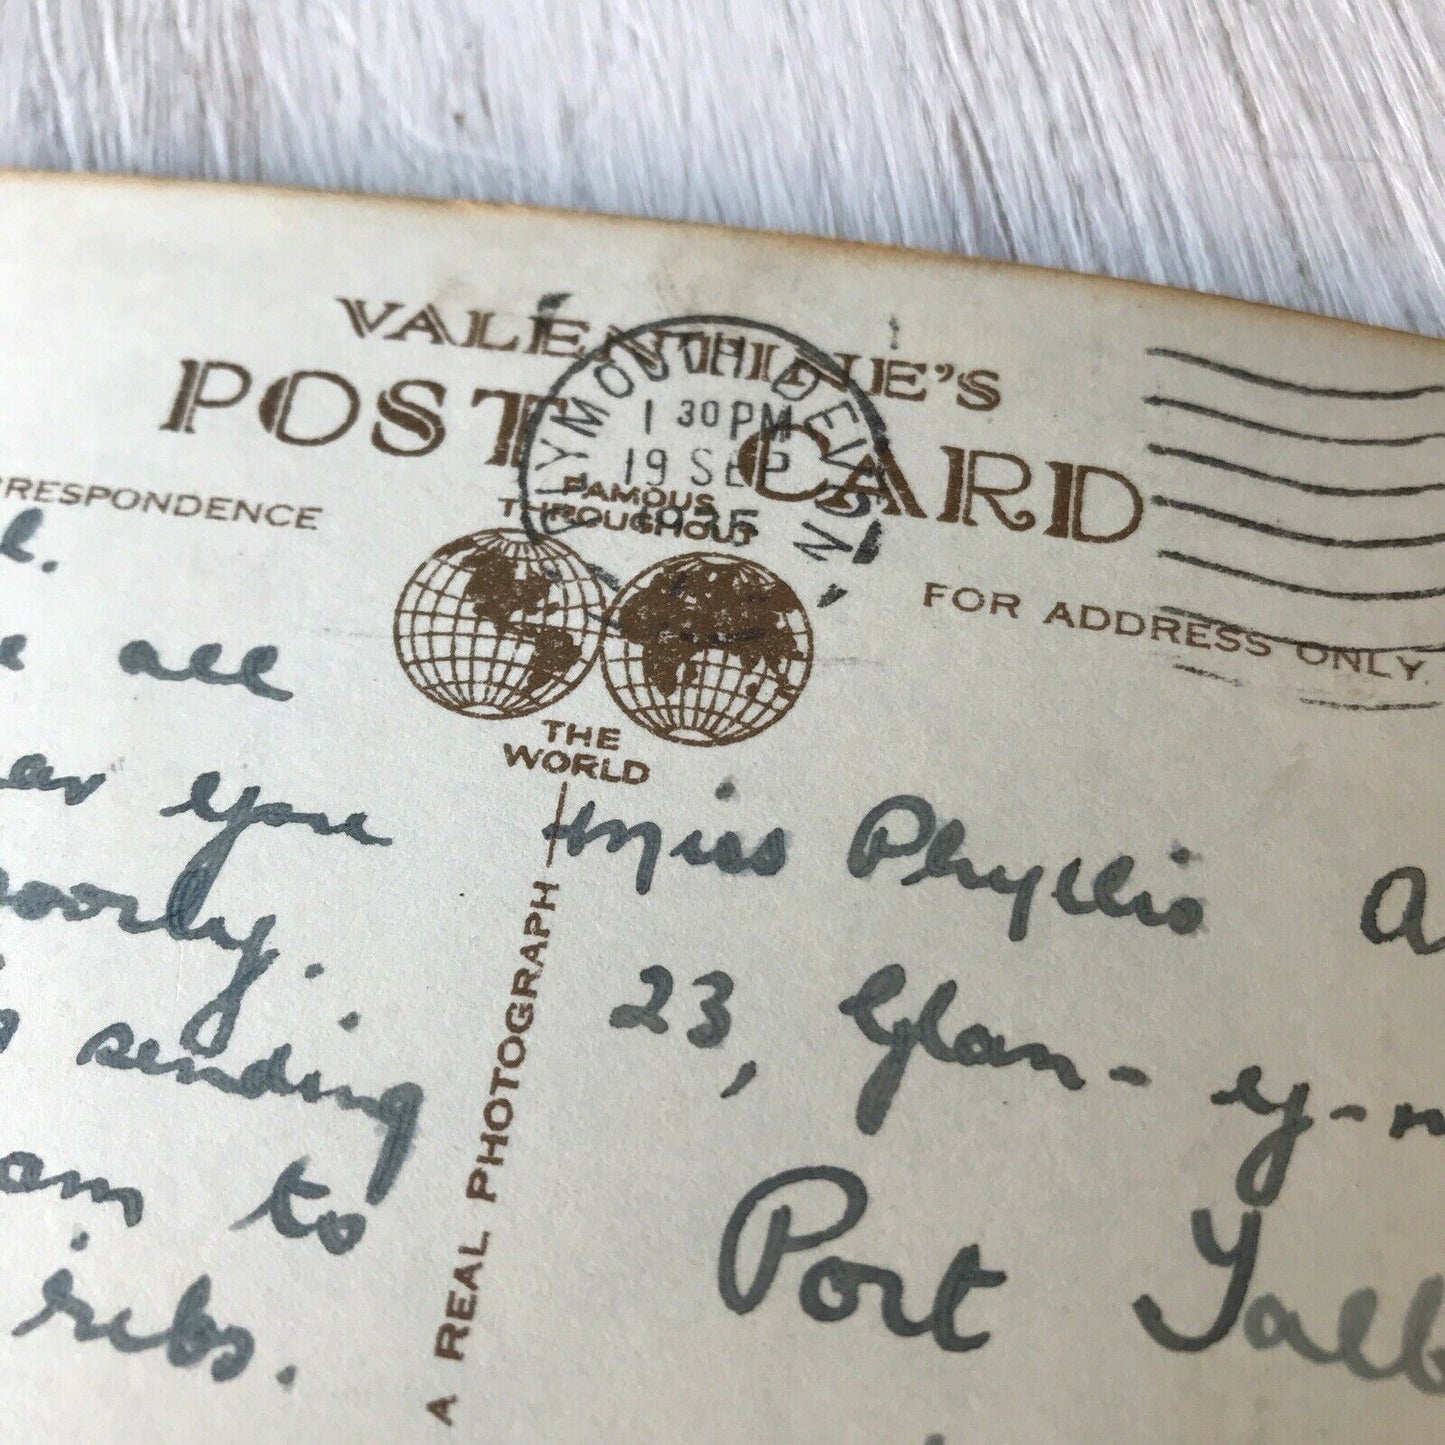 VALENTINE'S
POST CARD
PLYMOUTH DEVON
1 30 PM
19 SEP
1935
RRESPONDENCE
FAMOUS
THROUGHOUT
THE
WORLD
FOR ADDRESS ONLY.
A REAL PHOTOGRAPH
all
you
poorly.
sending
to
ribs.
Miss Phyllis A
23, Glan-y-m
Port Talb